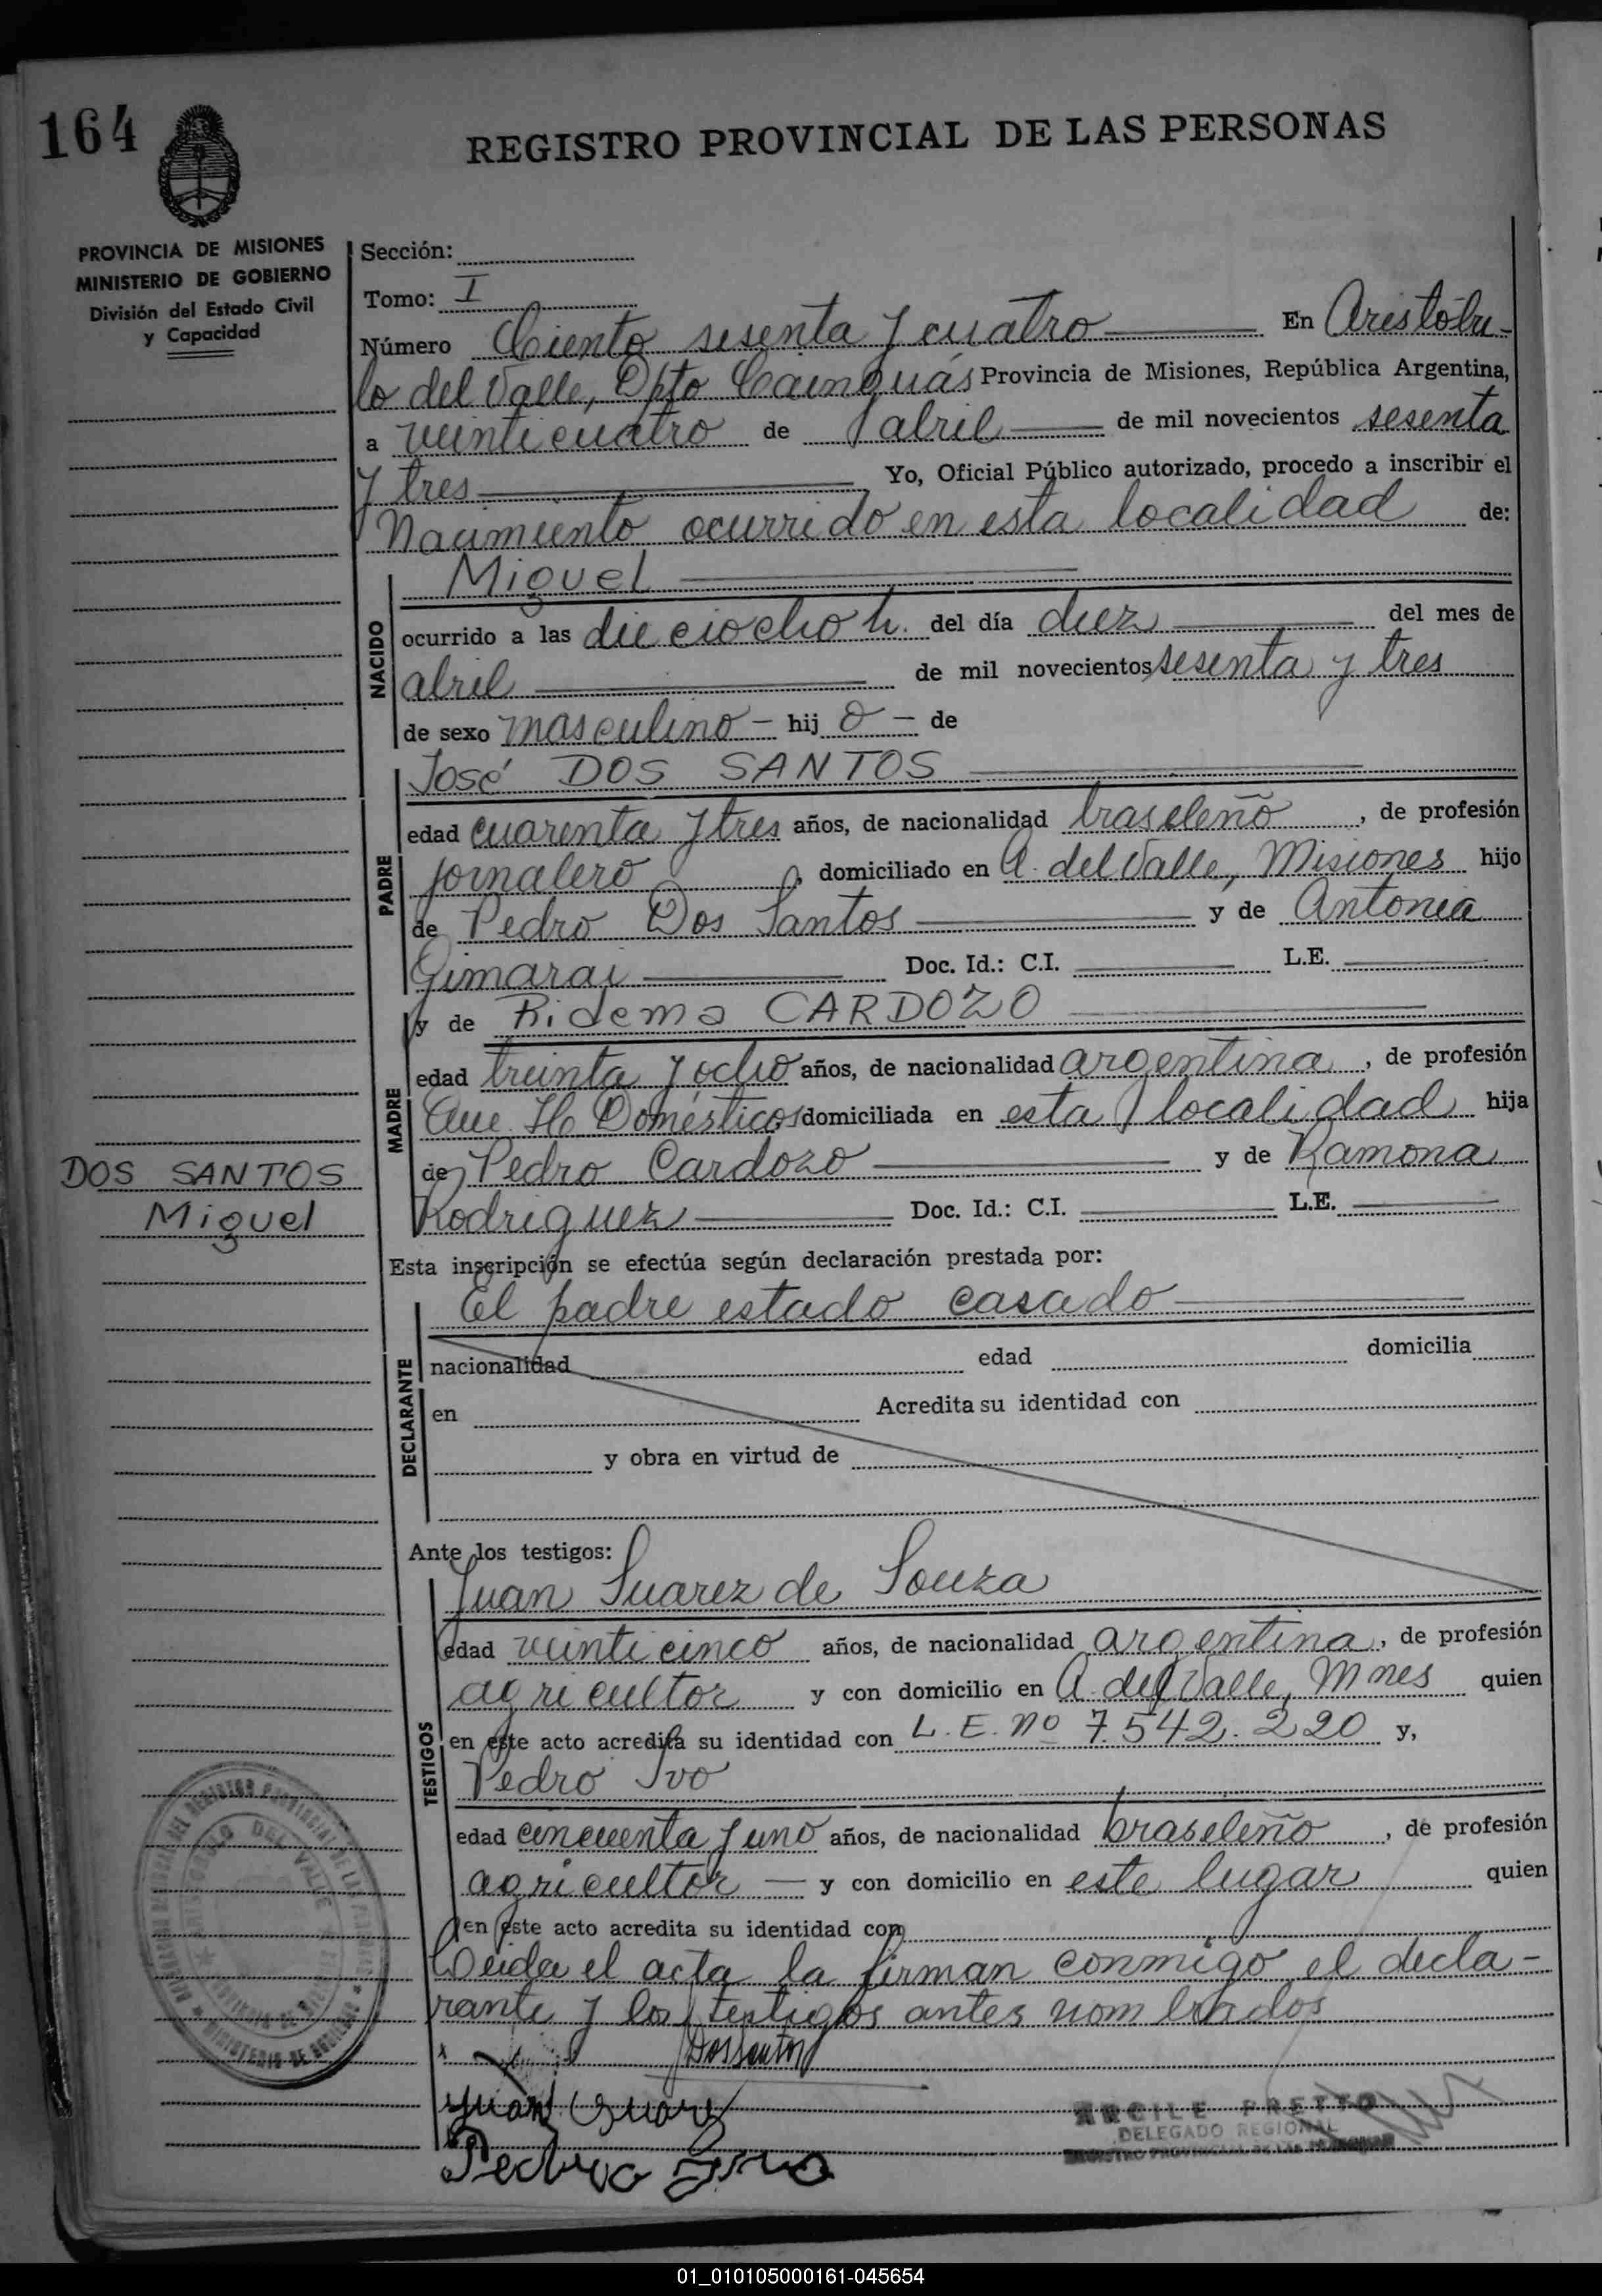 164
REGISTRO PROVINCIAL DE LAS PERSONAS
PROVINCIA DE MISIONES
MINISTERIO DE GOBIERNO
División del Estado Civil
y Capacidad
Sección:
Tomo: I
Número Ciento sesenta y cuatro En Aristóbu-
lo del Valle, Dpto Cainguás Provincia de Misiones, República Argentina,
a veinticuatro de abril de mil novecientos sesenta
y tres Yo, Oficial Público autorizado, procedo a inscribir el
Nacimiento ocurrido en esta localidad de:
NACIDO
Miguel
ocurrido a las dieciocho h. del día diez del mes de
abril de mil novecientos sesenta y tres
de sexo masculino - hij o - de
PADRE
José DOS SANTOS
edad cuarenta y tres años, de nacionalidad brasileño, de profesión
jornalero, domiciliado en A. del Valle, Misiones hijo
de Pedro Dos Santos y de Antonia
Gimarai Doc. Id.: C.I. L.E.
MADRE
y de Ridema CARDOZO
edad treinta y ocho años, de nacionalidad argentina, de profesión
Que. H. Domésticos domiciliada en esta localidad hija
de Pedro Cardozo y de Ramona
Rodriguez Doc. Id.: C.I. L.E.
DOS SANTOS
Miguel
Esta inscripción se efectúa según declaración prestada por:
DECLARANTE
El padre estado casado
nacionalidad edad domicilia
en Acredita su identidad con
y obra en virtud de
Ante los testigos:
TESTIGOS
Juan Suarez de Souza
edad veinticinco años, de nacionalidad argentina, de profesión
agricultor y con domicilio en A. del Valle, Mnes quien
en este acto acredita su identidad con L. E. Nº 7.542.220 y,
Pedro Ivo
edad cincuenta y uno años, de nacionalidad brasileño, de profesión
agricultor — y con domicilio en este lugar quien
en este acto acredita su identidad con
Leida el acta la firman conmigo el decla-
rante y los testigos antes nombrados
x Dos santos
Juan Suarez
Pedro
ARCILE PRETTO
DELEGADO REGIONAL
REGISTRO PROVINCIAL DE LAS PERSONAS
01_010105000161-045654